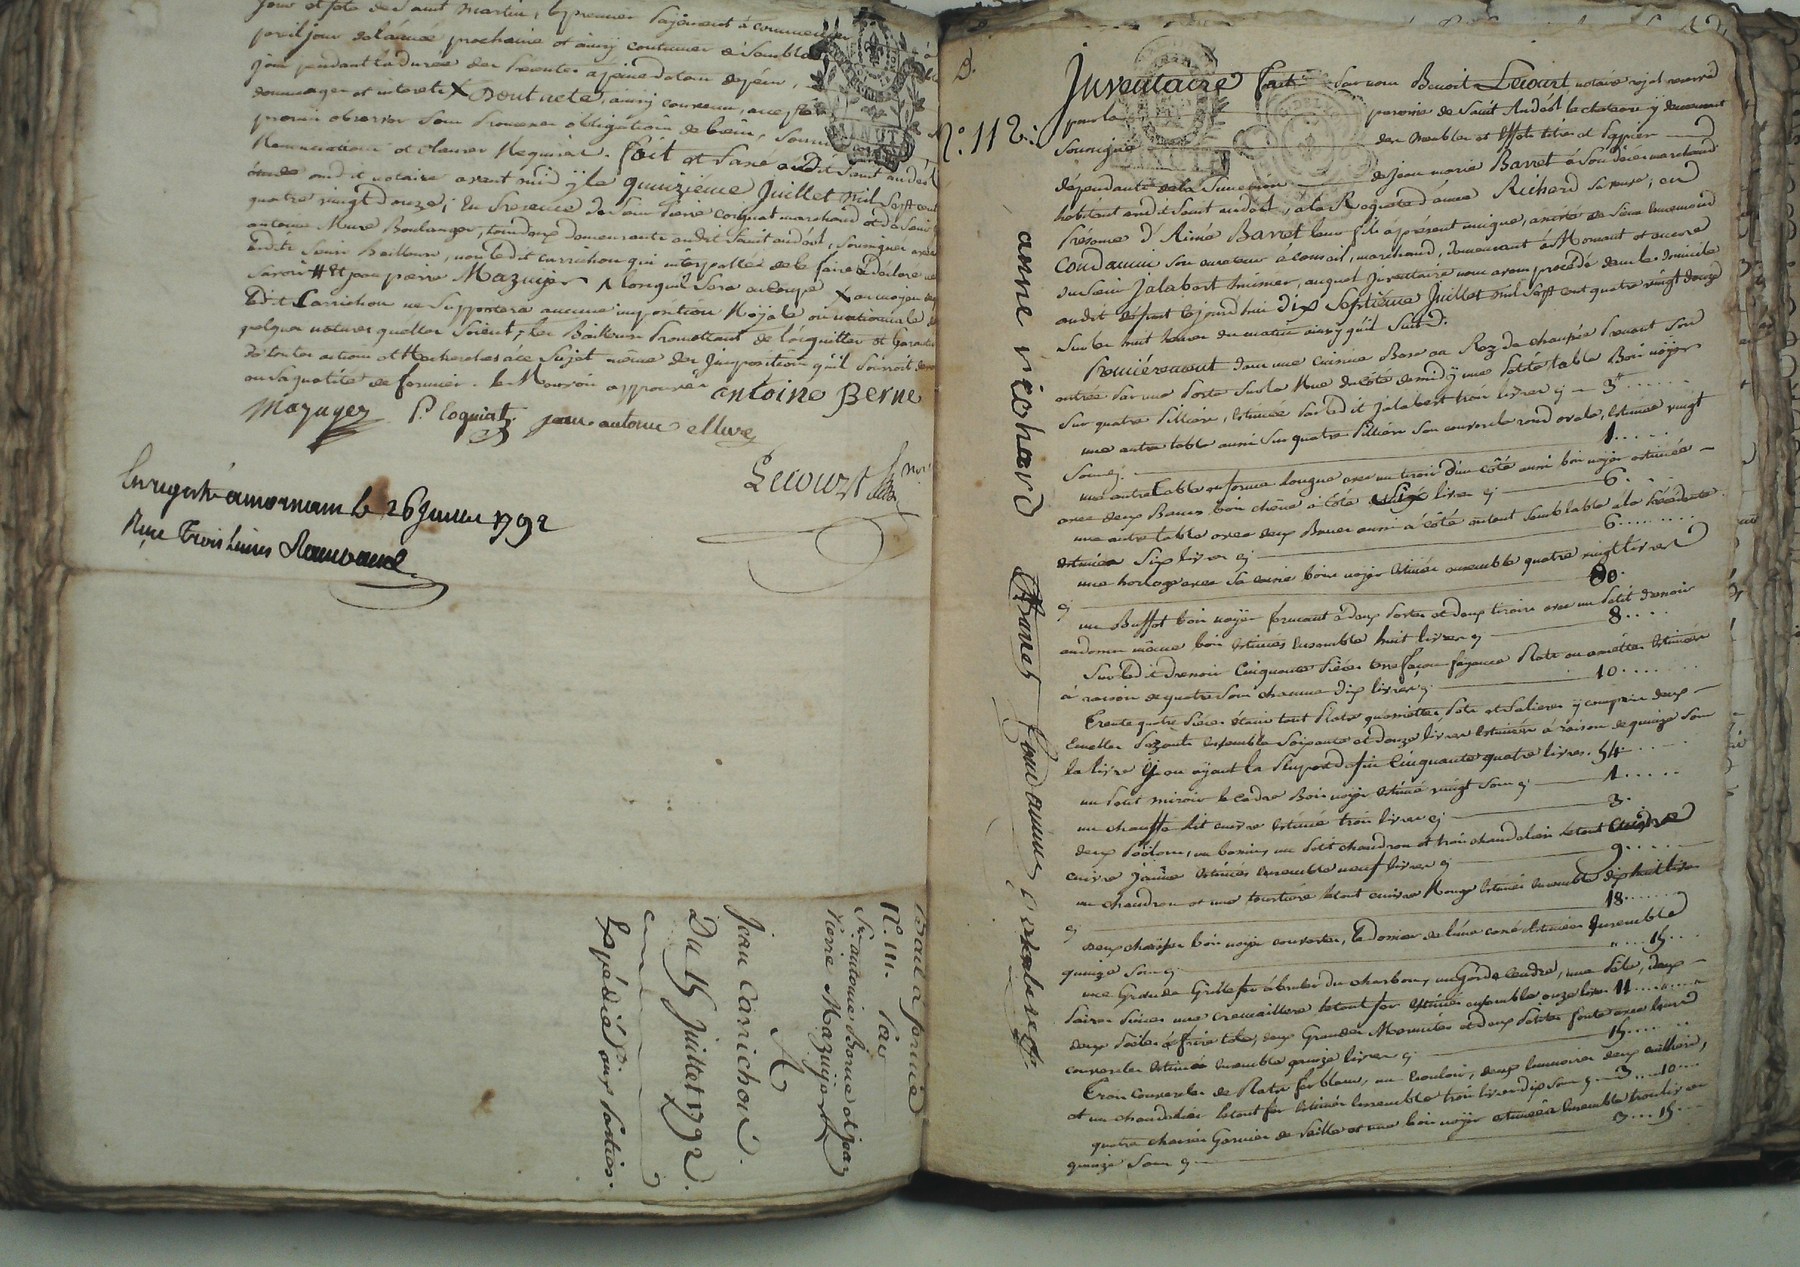 jour et fête de Saint Martin, le premier payement à commencer
pareil jour de l'année prochaine et ainsy continuer à Semblable
jour pendant la durée des présentes à peine de tous dépens,
dommages et interets X Dont acte, ainsy convenu, avec
promis observer sous promesses obligations de biens, Soumis
Renonciations et clauses Requises. fait et Passé audit Saint andéol
étude dudit notaire avant midi ÿ le quinziéme Juillet mil Sept cent
quatre vingt douze; En presence de Sieur Pierre coquat marchand et de Sieur
antoine Mure Boulanger, tous deux demeurants audit Saint andéol, Soussignés avec
lesdits Sieurs Bailleurs, non ledit carrichon qui interpellé de le faire a déclaré ne
Savoir # Et jean pierre Mazuyer
ledit Carrichon ne Supportera aucune imposition Royale ou nationale de
quelque nature qu'elles Soient, les Bailleurs promettant de l'acquitter et Garantir
de toutes actions et Recherches à ce Sujet même des Impositions qu'il pourroit devoir
en Sa qualité de fermier. les Renvois approuvés antoine Berne
Mazuyer P. Coquiat jean antoine Mure
Lecourt
Enregistré a mornant le 26 Juillet 1792
Reçu Trois livres
Bail a ferme
N°. 111. Par
Sr. antoine Berne et jean
Pierre Mazuyer
A
Jean Carrichon.
Du 15 Juillet 1792.
Expédié aux parties.
N°. 112.
Inventaire fait Par nous Benoit Lecourt notaire royal reservé
pour la paroisse de Saint Andéol le chateau ÿ demeurant
Soussigné des Meubles et Effets titres et Papiers
dépendants de la Succession de jean marie Barret à Son décès marchand
habitant audit Saint andéol, à la Requete d'anne Richard Sa veuve, en
Présence d'Aimé Barret leur fils à présent unique, assisté de Sieur
Condamin Son curateur à conseil, marchand, demeurant à Mornant et encore
du Sieur Jalabert huissier, auquel Inventaire nous avons procédé dans le domicile
audit défunt le jourd'hui dix Septième Juillet mil Sept cent quatre vingt douze
Sur les huit heures du matin ainsy qu'il Suit.
Premiérement dans une cuisine Basse au Rez de chaussée Prenant Son
entrée Par une Porte Sur la Rue du côté de midÿ une Petite table Bois noÿer
Sur quatre Pilliers, Estimée Par ledit Jalabert trois livres cy 3
une autre table aussi Sur quatre Pilliers Son couvercle rond ovale, Estimée vingt
Sous cy 1
une autre table en forme longue avec un tiroir d'un côté aussi bois noÿer estimée
avec deux Bancs bois chêne à côté Six livres cy 6
une autre table avec deux Bancs aussi à côté en tout Semblable à la Précédente
Estimée Six livres cy 6
une horloge avec Sa caisse bois noÿer Estimée ensemble quatre vingt livres
cy 80
un Buffet bois noÿer fermant à deux Portes et deux tiroirs avec un Petit dressoir
au dessus même bois Estimés Ensemble huit livres cy 8
Sur ledit dressoir Cinquante Pièces terre façon faÿence Plats ou assiettes Estimées
à raison de quatre Sous chacune dix livres cy 10
Trente quatre Pièces étain tant Plats qu'assiettes, Pots et Salieres ÿ compris deux
Ecuelles Pezants ensemble Soixante et douze livres Estimées à raison de quinze Sous
la livre cinquante quatre livres. 54
un Petit miroir le cadre Bois noÿer Estimé vingt Sous cy 1
un chauffe lit cuivre Estimé trois livres cy 3
deux un bassin, un Petit chaudron et trois chandeliers le tout
cuivre jaûne Estimés Ensemble neuf livres cy 9
un chaudron et une tourtière le tout cuivre Rouge Estimés Ensemble dix huit livres
cy 18
deux chaises bois noÿer couvertes, le dossier de l'une cassé Estimées Ensemble
quinze Sous cy 15
une Grande Grille fer à bruler du charbon, un Garde cendre, une Pêle, deux
Paires Pinces une cremaillere le tout fer Estimés ensemble onze livres 11
deux Poëles à frire tôle, deux Grandes Marmites et deux Petites fonte avec leurs
couvercles Estimés ensemble quinze livres cy 15
Trois couvercles de Plats fer blanc, un couloir, deux deux cuillers,
et un chandelier le tout fer Estimés Ensemble trois livres dix Sous cy 3 10
quatre chaises Garnies de Paille et une bois noÿer estimées Ensemble trois livres
quinze Sous cy 3 15
anne richard
Barret
Condamin
Jalabert